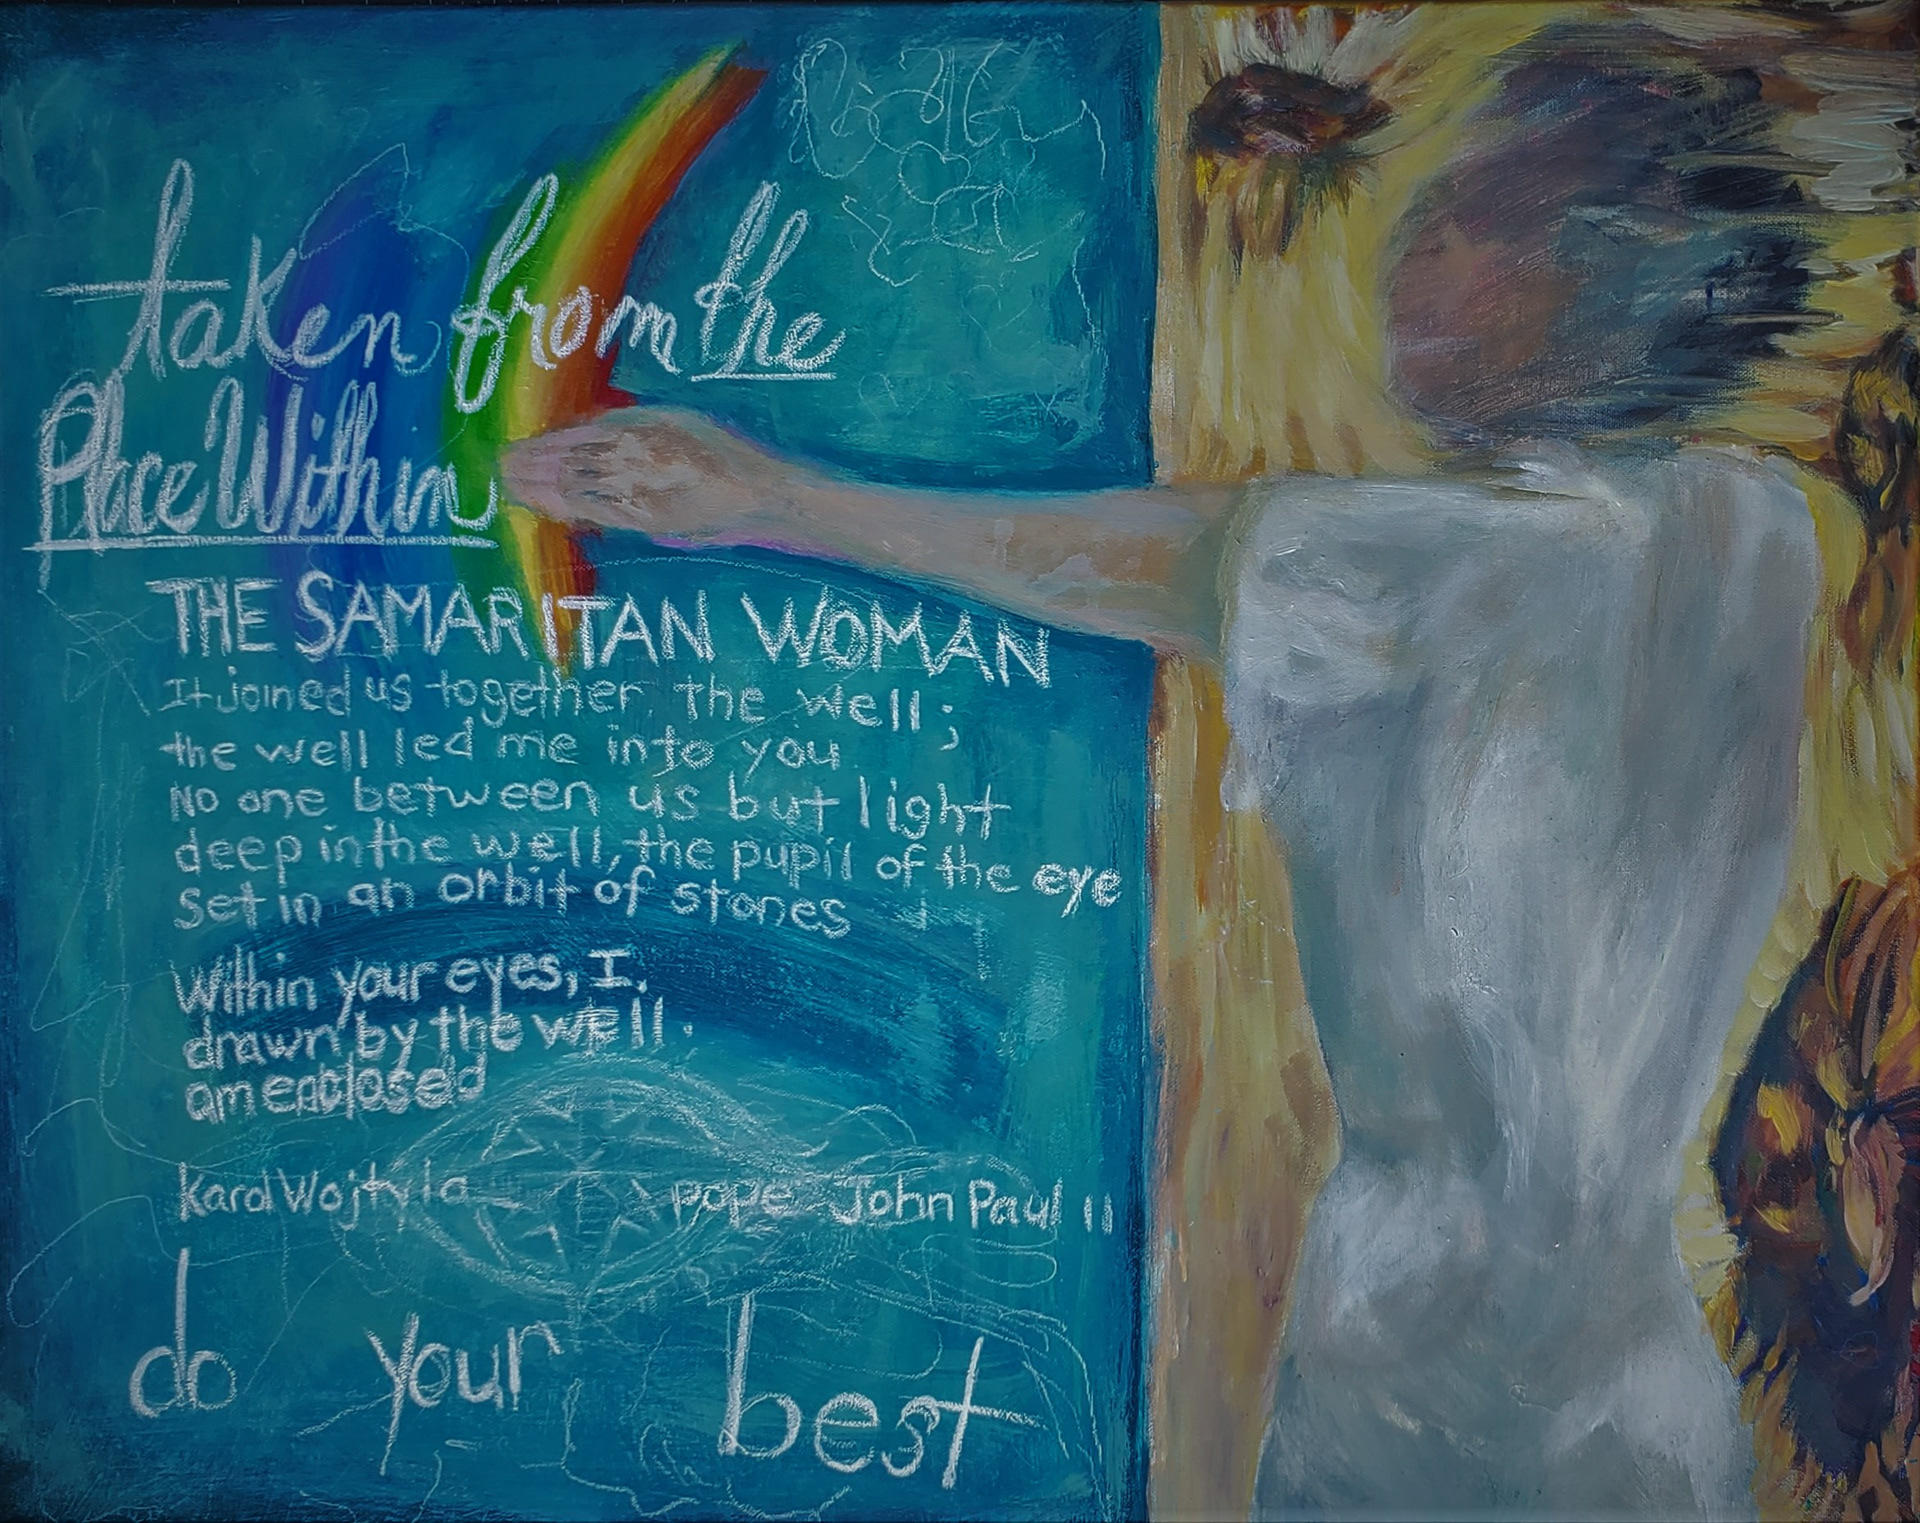 taken from the
Place Within
THE SAMARITAN WOMAN
It joined us together, the well;
the well led me into you
No one between us but light
deep in the well, the pupil of the eye
Set in an orbit of stones
Within your eyes, I,
drawn by the well.
am enclosed
Karol Wojtyla pope John Paul II
do your best